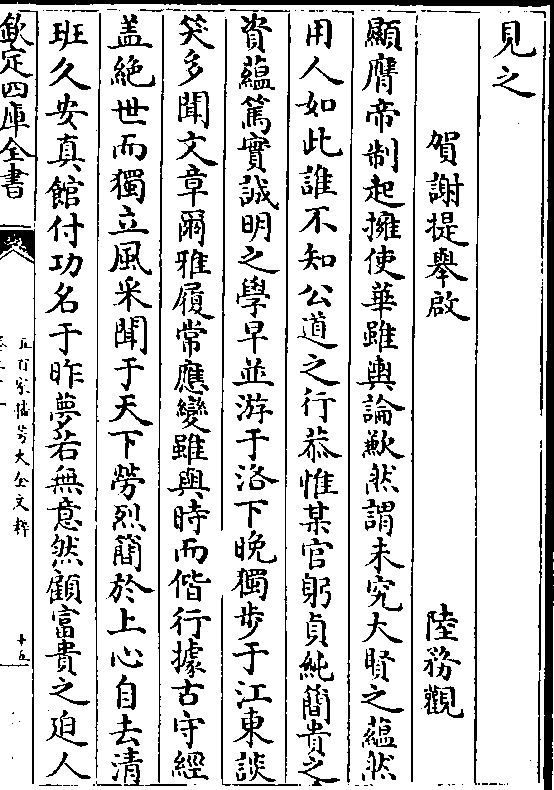 見之
賀謝提舉啟　陸務觀
顯膺帝制起擁使華雖輿論歉然謂未究大賢之蘊然
用人如此誰不知公道之行恭惟某官躬貞純簡貴之
資蘊篤實誠明之學早並游于洛下晚獨步于江東談
笑多聞文章爾雅履常應變雖與時而偕行據古守經
盖絶世而獨立風采聞于天下勞烈簡於上心自去清
班久安真館付功名于昨夢若無意然顧富貴之迫人
欽定四庫全書
五百家播芳大全文粹
十五